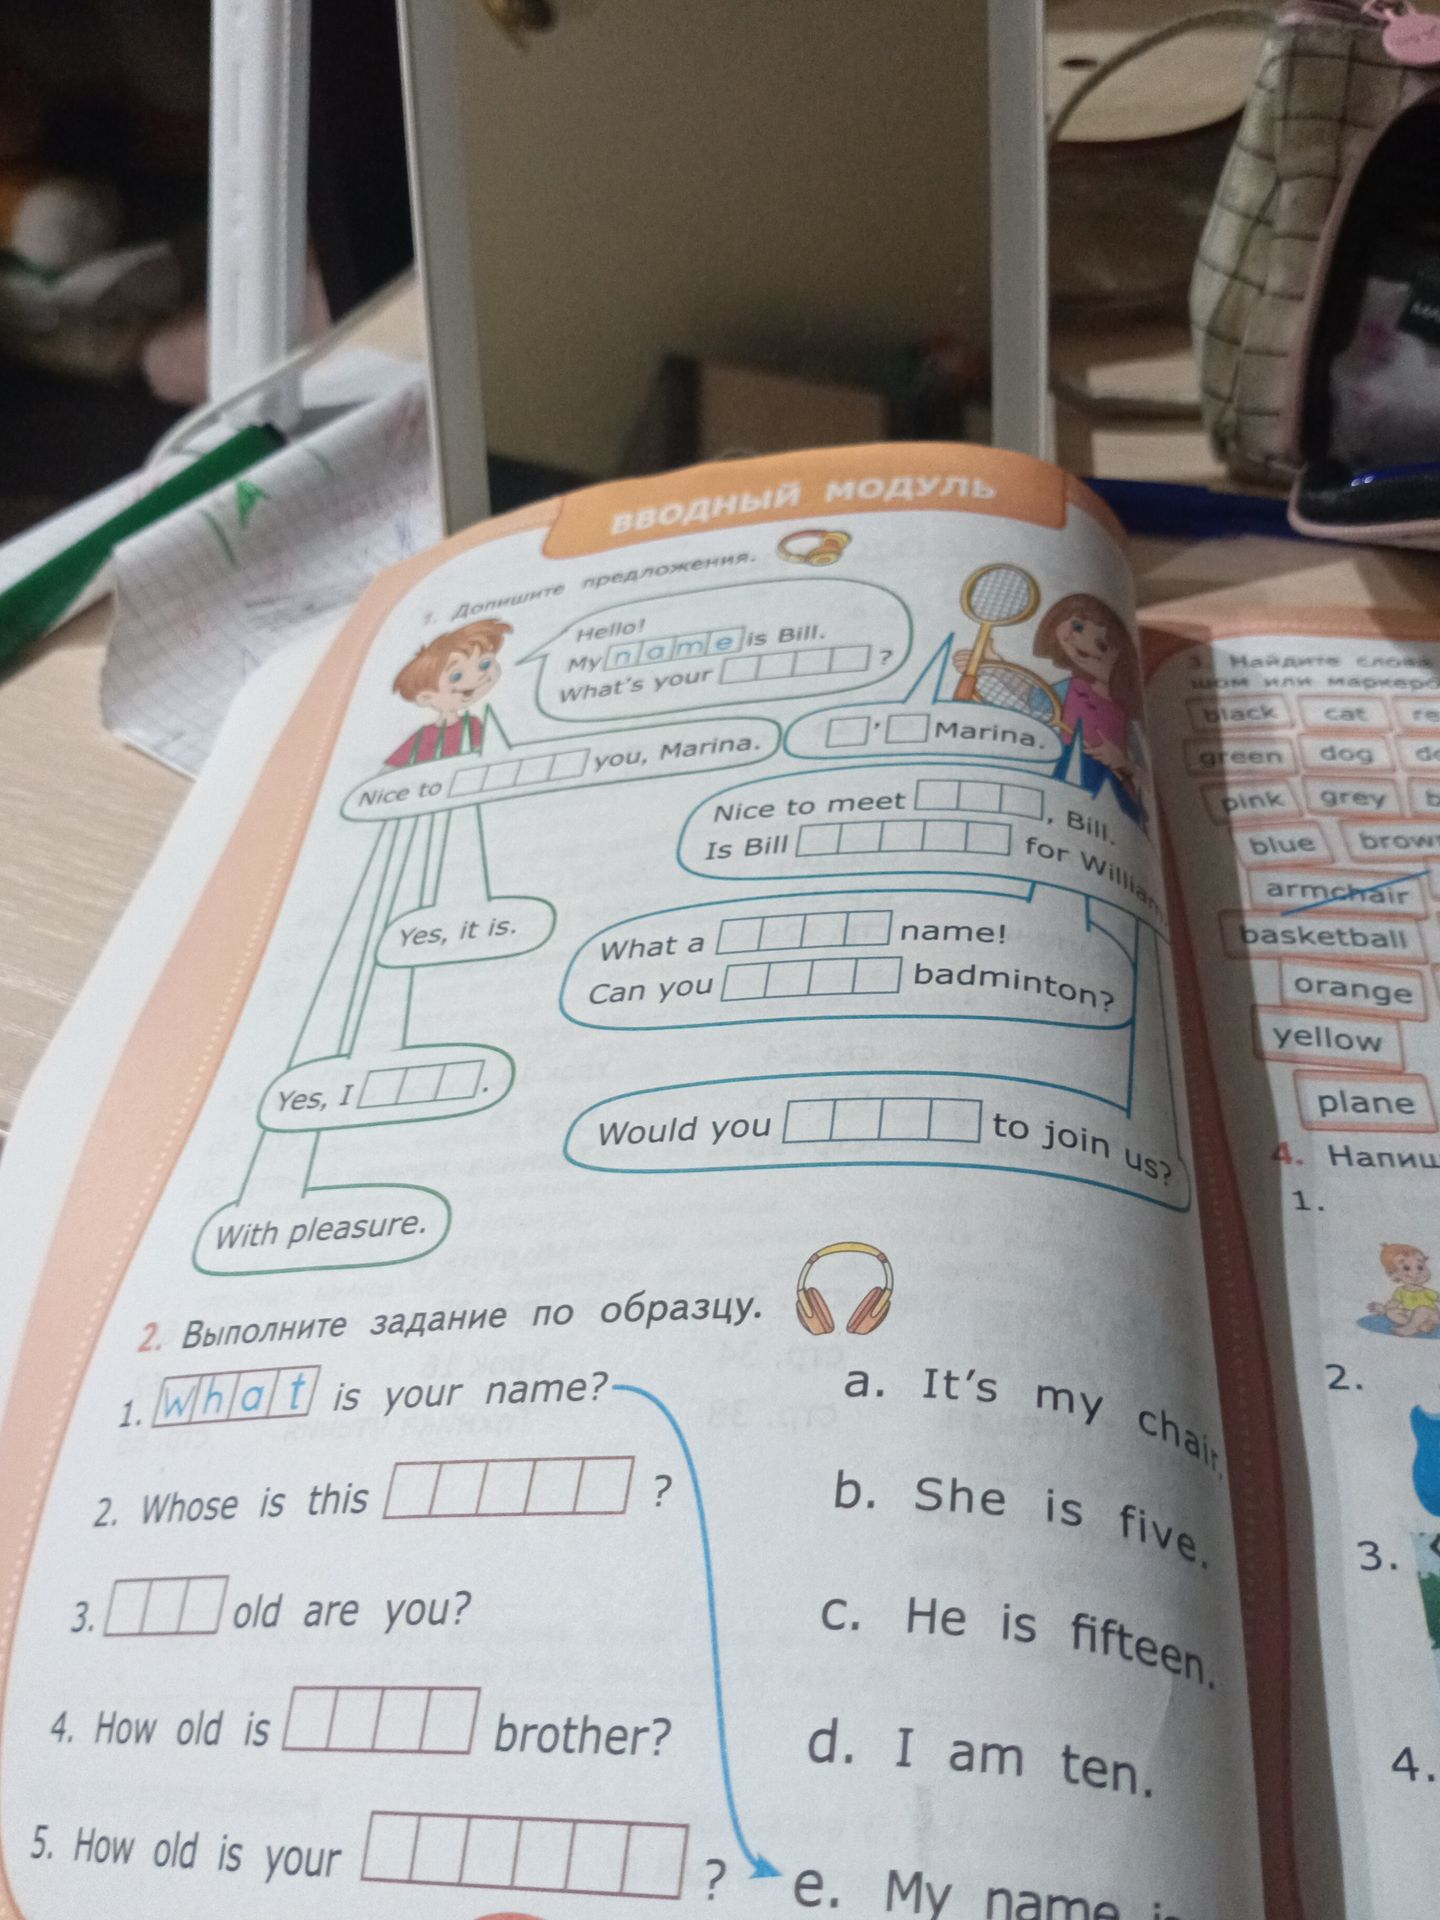 ВВОДНЫЙ МОДУЛЬ
1. Допишите предложения.
Hello!
My name is Bill.
What's your ?
' Marina.
Nice to you, Marina.
Nice to meet , Bill.
Is Bill for William
Yes, it is.
What a name!
Can you badminton?
Yes, I .
Would you to join us?
With pleasure.
2. Выполните задание по образцу.
1. what is your name?
2. Whose is this ?
3. old are you?
4. How old is brother?
5. How old is your ?
a. It's my chair.
b. She is five.
c. He is fifteen.
d. I am ten.
e. My name is
3. Найдите слова
шом или маркеро
black cat re
green dog do
pink grey b
blue brown
armchair
basketball
orange
yellow
plane
4. Напиш
1.
2.
3.
4.